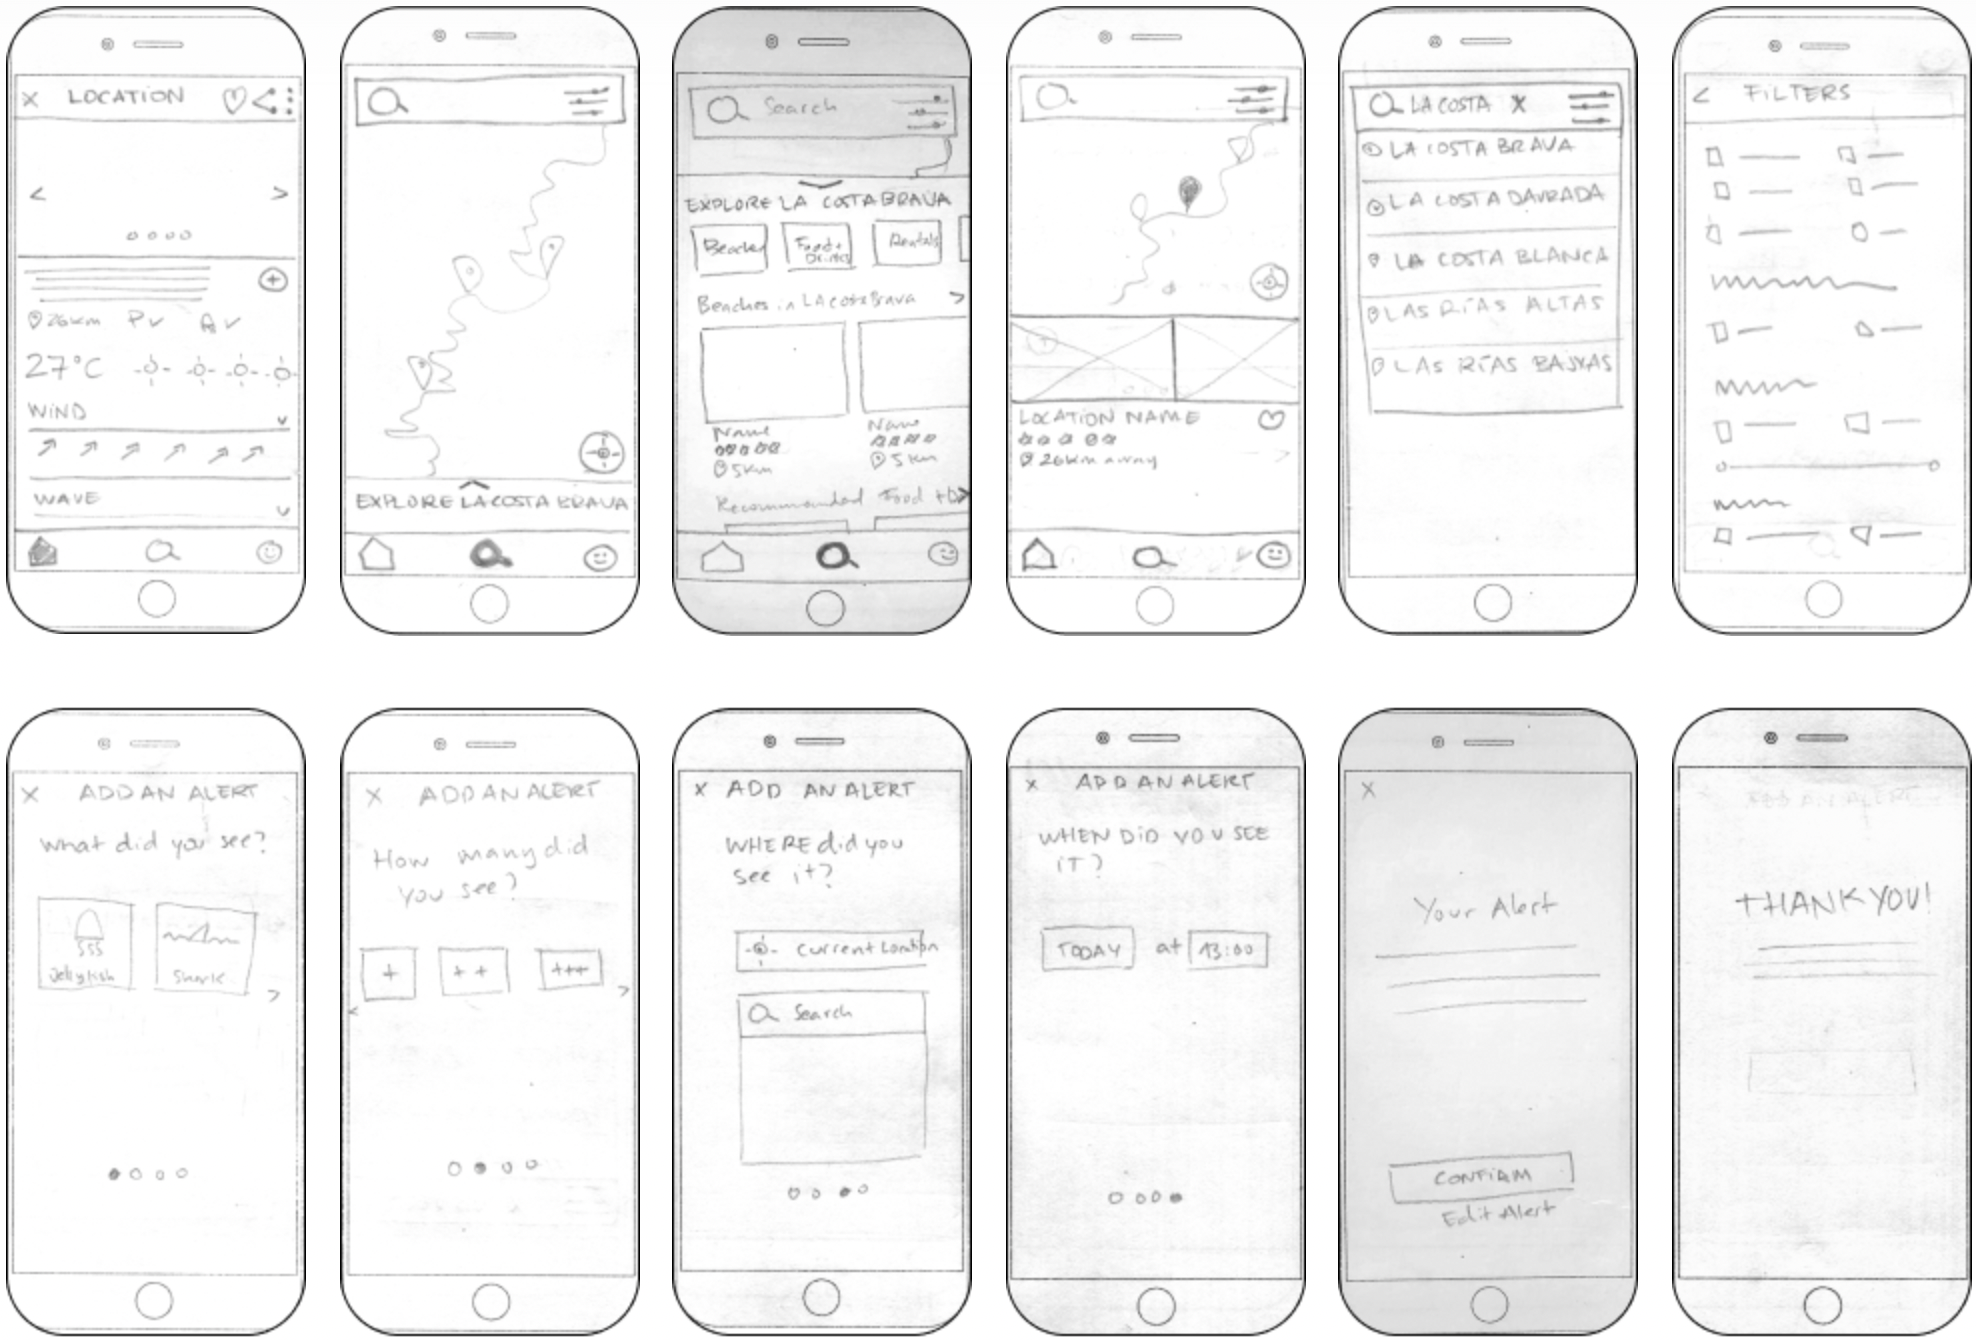 X LOCATION
26km P A
27°C
WIND
WAVE
EXPLORE LA COSTA BRAVA
Search
EXPLORE LA COSTA BRAVA
Beaches
Food + Drinks
Rentals
Beaches in LA costa Brava >
Name
5km
Name
5km
Recommended Food +
LOCATION NAME
26km away
LA COSTA X
LA COSTA BRAVA
LA COSTA DAURADA
LA COSTA BLANCA
LAS RÍAS ALTAS
LAS RÍAS BAJXAS
< FILTERS
X ADD AN ALERT
What did you see?
Jellyfish
Shark
>
X ADD AN ALERT
How many did
you see?
+
++
+++
< >
X ADD AN ALERT
WHERE did you
see it?
Current Location
Search
X ADD AN ALERT
WHEN DID YOU SEE
IT?
TODAY at 13:00
X
Your Alert
CONFIRM
Edit Alert
THANK YOU!